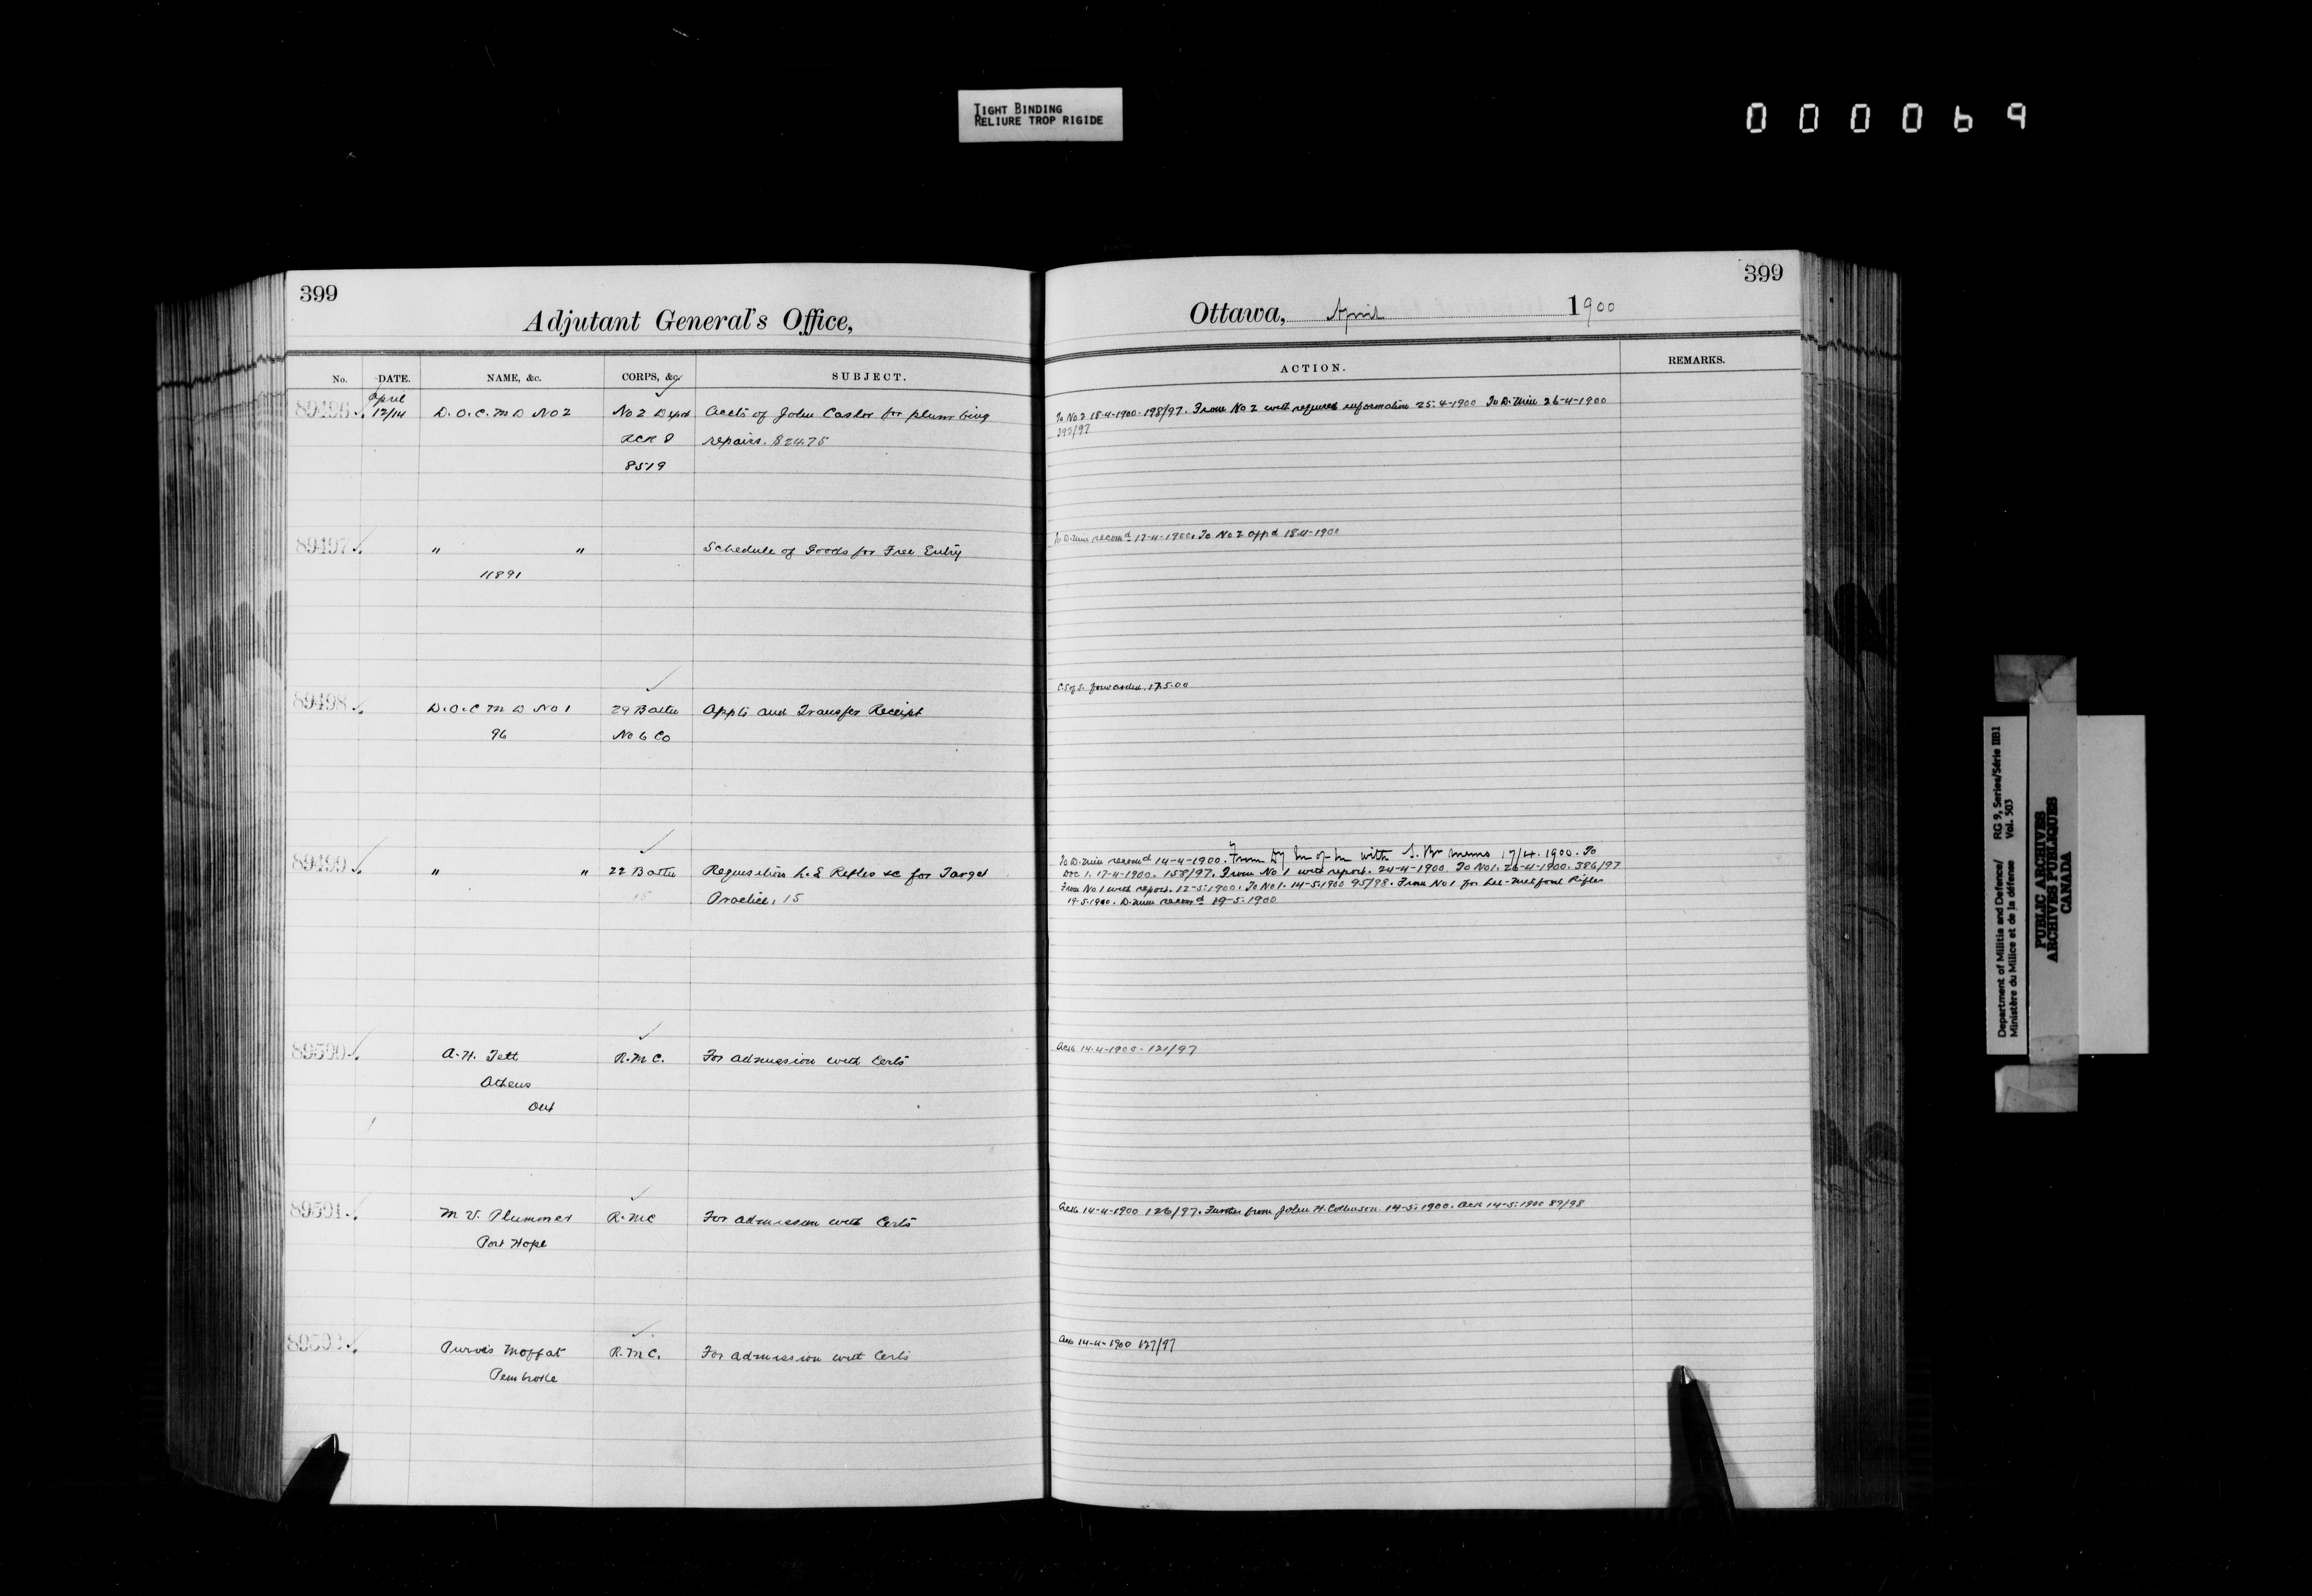 TIGHT BINDING
RELIURE TROP RIGIDE
000069
399
Adjutant General's Office,
No. DATE. NAME, &c. CORPS, &c. SUBJECT.
April
89496 12/14 D.O.C. M D No 2 No 2 Depot Accts of John Caslor for plumbing
RCR I repairs. $24.75
8519
89497 " " Schedule of Goods for Free Entry
11891
89498 D.O.C M D No 1 29 Battn Appts and Transfer Receipt
96 No 6 Co
89499 " " 22 Battn Requisition L.E Rifles &c for Target
15 Practice, 15
89500 A.H. Tett R.M.C. For admission with Certs
Athens
Ont
89501 M V. Plummer R.MC For admission with Certs
Port Hope
89502 Purvis Moffat R.M.C. For admission with Certs
Pembroke
399
Ottawa, April 1900
ACTION. REMARKS.
To No 2 18-4-1900 198/97. From No 2 with required information 25-4-1900 To D. Min 26-4-1900
393/97
To D. Min recomd 17-4-1900. To No 2 appd 18-4-1900
forwarded. 17.5.00
To D. Min recomd 14-4-1900. From with S. Br memo 17/4.1900. To
DOC 1. 17-4-1900. 158/97. From No 1 with report. 24-4-1900. To No 1. 26-4-1900. 386/97
From No 1 with report. 12-5-1900. To No 1. 14-5-1900 95/98. From No 1 for Lee-Metford Rifles
19-5-1900. D. Min recomd 19-5-1900
Ack 14-4-1900. 121/97
Ack 14-4-1900 126/97. Further from John H. Collinson. 14-5-1900. Ack 14-5-1900 89/98
Ack 14-4-1900 127/97
Department of Militia and Defence/ RG 9, Series/Série IIB1
Ministère du Milice et de la défense Vol. 503
PUBLIC ARCHIVES
ARCHIVES PUBLIQUES
CANADA